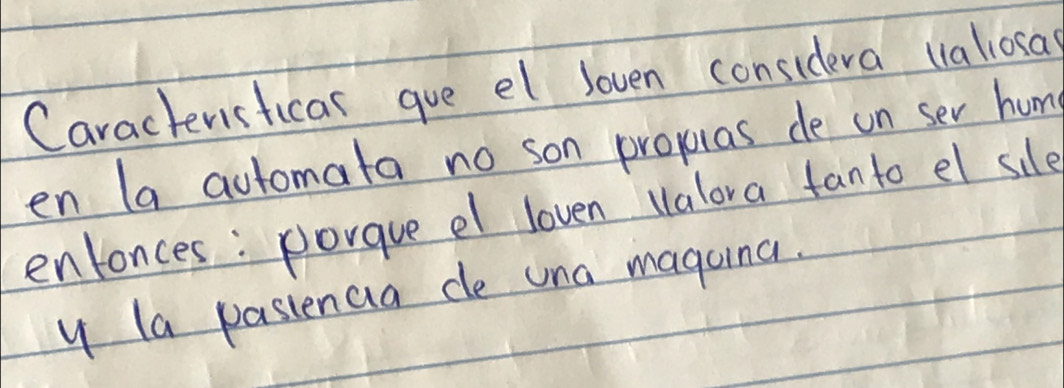 Caracteristicas que el Joven considera valiosas
en la automata no son propias de un ser hum
entonces: porque el Joven valora tanto el sile
y la pasiencia de una maquina.